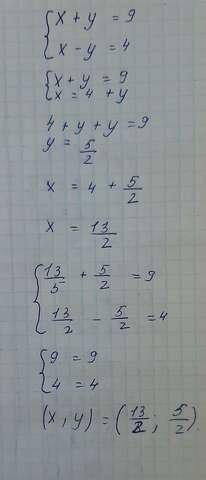 { x + y = 9
x - y = 4
{ x + y = 9
x = 4 + y
4 + y + y = 9
y = 5/2
x = 4 + 5/2
x = 13/2
{ 13/5 + 5/2 = 9
13/2 - 5/2 = 4
{ 9 = 9
4 = 4
(x, y) = (13/2; 5/2).